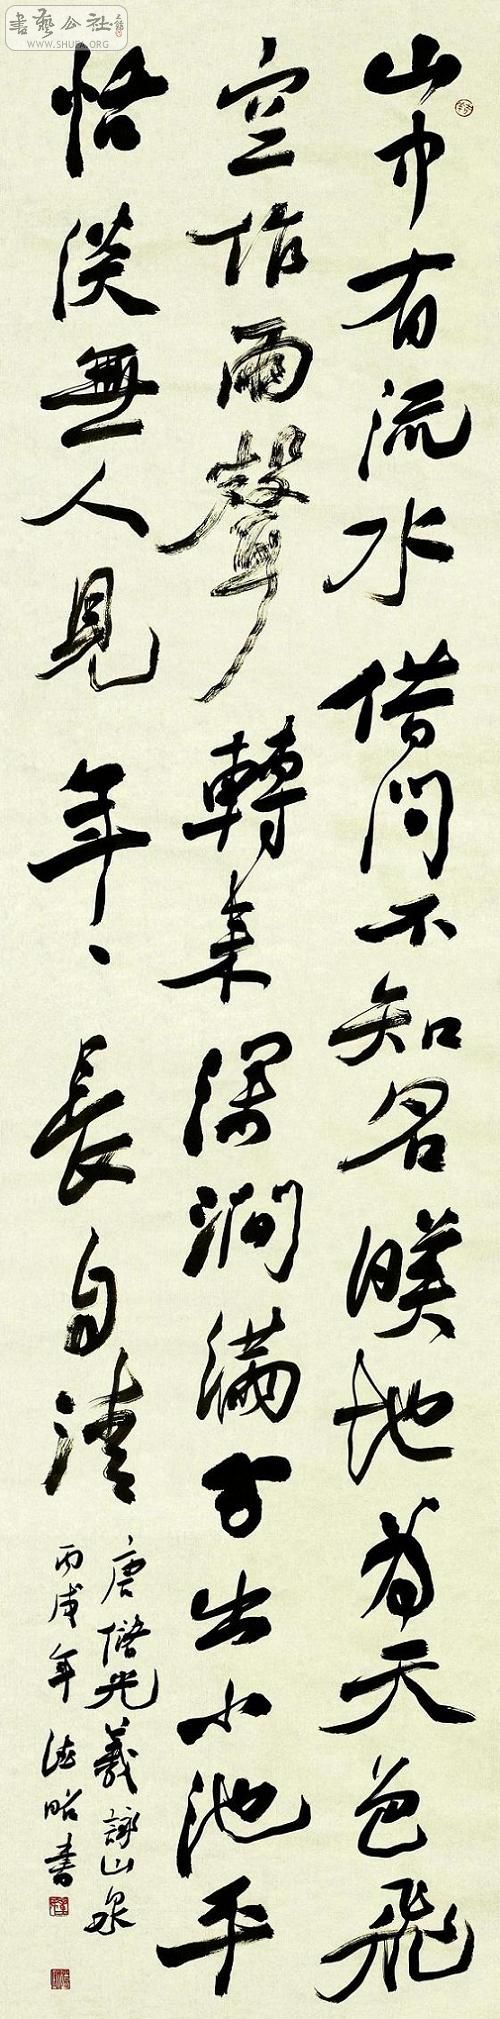 書藝公社
WWW.SHUFA.ORG
山中有流水借問不知名暎地為天色飛
空作雨聲轉來深澗滿分出小池平
恬淡無人見年、長自清
唐儲光羲詠山泉
丙戌年 書